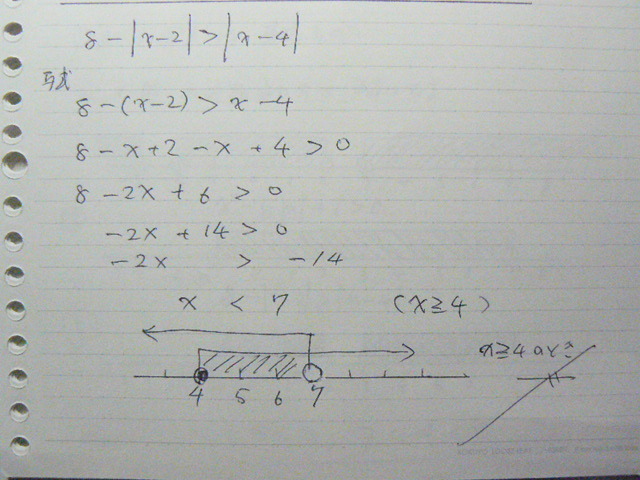 8 - |x-2| > |x-4|
与式
8 - (x-2) > x - 4
8 - x + 2 - x + 4 > 0
8 - 2x + 6 > 0
-2x + 14 > 0
-2x > -14
x < 7 (x ≧ 4)
x ≧ 4 のとき
4 5 6 7